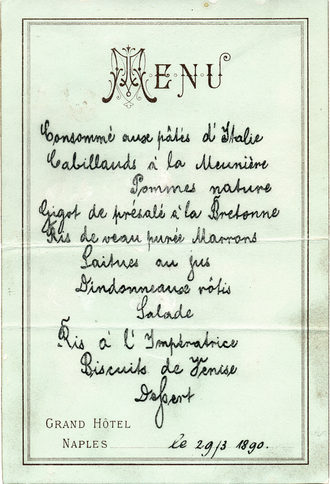 MENU
Consommé aux pâtés d'Italie
Cabillauds à la Meunière
Pommes nature
Gigot de présalé à la Bretonne
Ris de veau purée Marrons
Laitues au jus
Dindonneaux rôtis
Salade
Ris à l'Impératrice
Biscuits de Venise
Dessert
GRAND HÔTEL
NAPLES
le 29/3 1890.